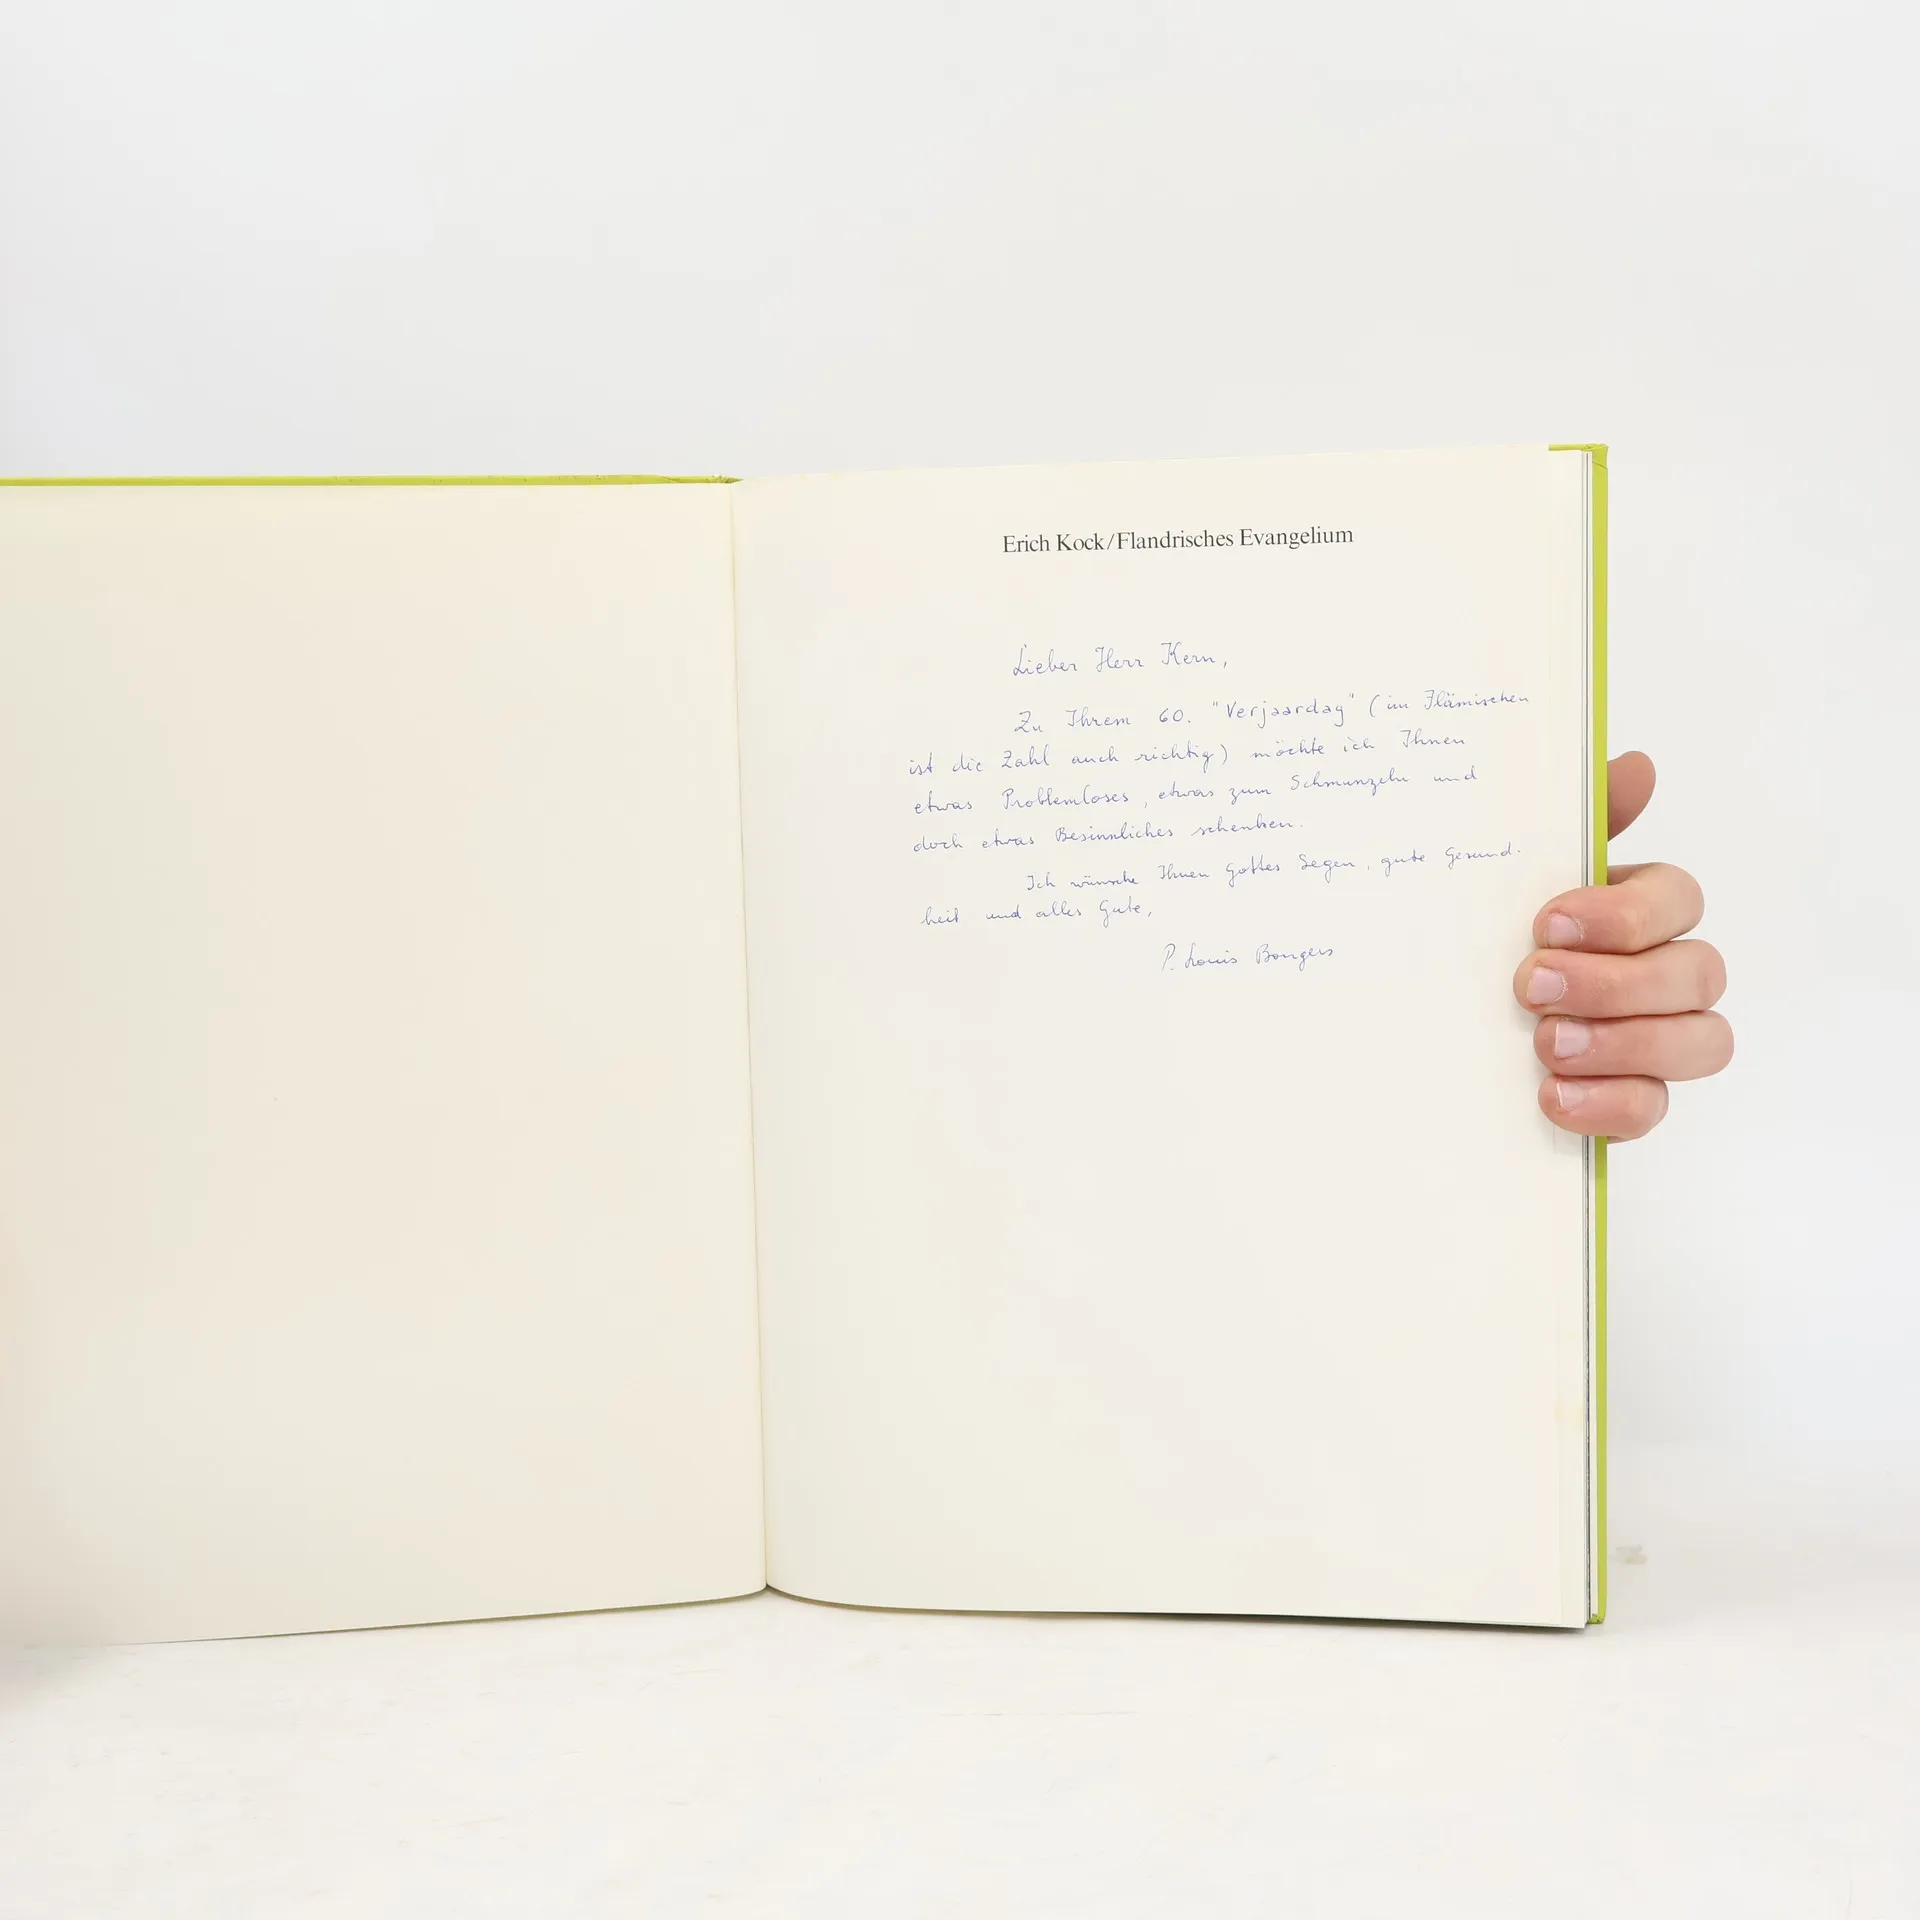 Erich Kock/Flandrisches Evangelium
Lieber Herr Kern,
Zu Ihrem 60. "Verjaardag" (im Flämischen
ist die Zahl auch richtig) möchte ich Ihnen
etwas Problemloses, etwas zum Schmunzeln und
doch etwas Besinnliches schenken.
Ich wünsche Ihnen Gottes Segen, gute Gesund-
heit und alles Gute,
P. Louis Bongers